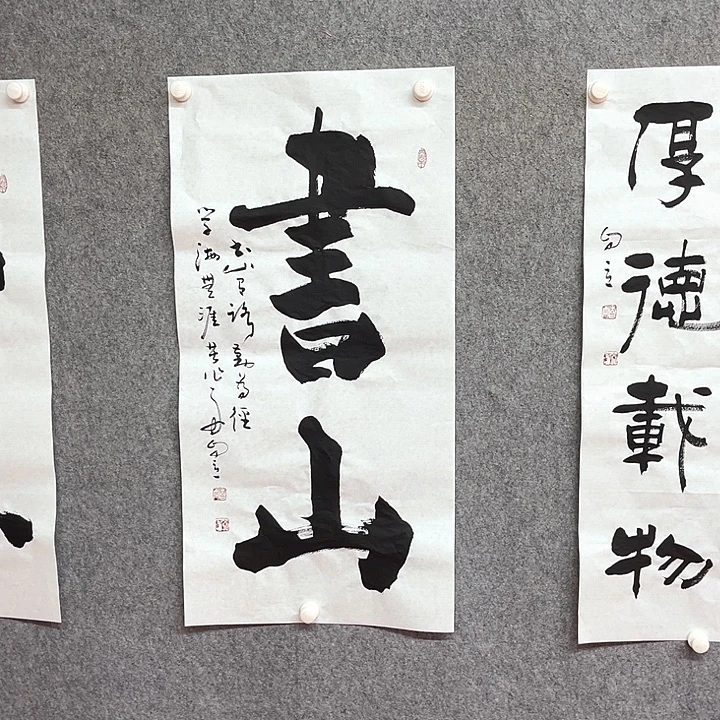 書山
書山有路勤為徑
学海無涯苦作舟
厚德載物